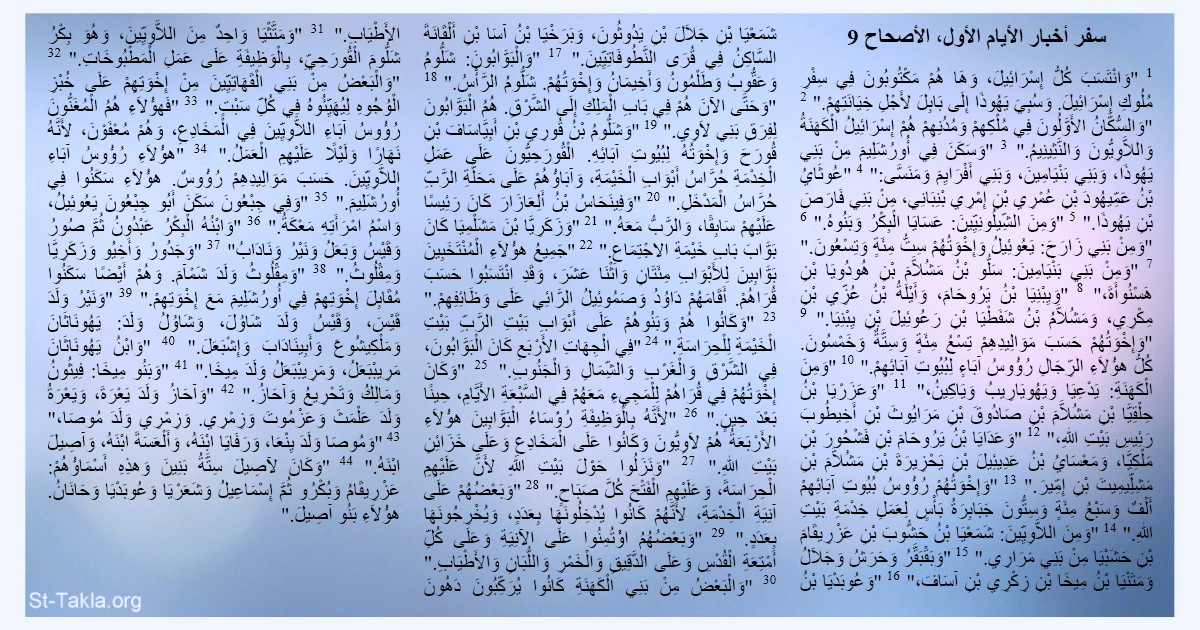 سفر أخبار الأيام الأول، الأصحاح 9
1 "وَانْتَسَبَ كُلُّ إِسْرَائِيلَ، وَهَا هُمْ مَكْتُوبُونَ فِي سِفْرِ
مُلُوكِ إِسْرَائِيلَ. وَسُبِيَ يَهُوذَا إِلَى بَابِلَ لأَجْلِ خِيَانَتِهِمْ." 2
"وَالسُّكَّانُ الأَوَّلُونَ فِي مُلْكِهِمْ وَمُدُنِهِمْ هُمْ إِسْرَائِيلُ الْكَهَنَةُ
وَاللاَّوِيُّونَ وَالنَّثِينِيمُ." 3 "وَسَكَنَ فِي أُورُشَلِيمَ مِنْ بَنِي
يَهُوذَا، وَبَنِي بَنْيَامِينَ، وَبَنِي أَفْرَايِمَ وَمَنَسَّى:" 4 "عُوثَايُ
بْنُ عَمِّيهُودَ بْنِ عُمْرِي بْنِ إِمْرِي بْنِبَانِي، مِنْ بَنِي فَارَصَ
بْنِ يَهُوذَا." 5 "وَمِنَ الشِّيلُونِيِّينَ: عَسَايَا الْبِكْرُ وَبَنُوهُ." 6
"وَمِنْ بَنِي زَارَحَ: يَعُوئِيلُ وَإِخْوَتُهُمْ سِتُّ مِئَةٍ وَتِسْعُونَ."
7 "وَمِنْ بَنِي بَنْيَامِينَ: سَلُّو بْنُ مَشُلاَّمَ بْنِ هُودُويَا بْنِ
هَسْنُوأَةَ،" 8 "وَيِبْنِيَا بْنُ يَرُوحَامَ، وَأَيْلَةُ بْنُ عُزِّي بْنِ
مِكْرِي، وَمَشُلاَّمُ بْنُ شَفَطْيَا بْنِ رَعُوئِيلَ بْنِ يِبْنِيَا." 9
"وَإِخْوَتُهُمْ حَسَبَ مَوَالِيدِهِمْ تِسْعُ مِئَةٍ وَسِتَّةٌ وَخَمْسُونَ.
كُلُّ هؤُلاَءِ الرِّجَالِ رُؤُوسُ آبَاءٍ لِبُيُوتِ آبَائِهِمْ." 10 "وَمِنَ
الْكَهَنَةِ: يَدْعِيَا وَيَهُويَارِيبُ وَيَاكِينُ،" 11 "وَعَزَرْيَا بْنُ
حِلْقِيَّا بْنِ مَشُلاَّمَ بْنِ صَادُوقَ بْنِ مَرَايُوثَ بْنِ أَخِيطُوبَ
رَئِيسِ بَيْتِ اللهِ،" 12 "وَعَدَايَا بْنُ يَرُوحَامَ بْنِ فَشْحُورَ بْنِ
مَلْكِيَّا، وَمَعْسَايُ بْنُ عَدِيئِيلَ بْنِ يَحْزِيرَةَ بْنِ مَشُلاَّمَ بْنِ
مَشِلِّيمِيتَ بْنِ إِمِّيرَ." 13 "وَإِخْوَتُهُمْ رُؤُوسُ بُيُوتِ آبَائِهِمْ
أَلْفٌ وَسَبْعُ مِئَةٍ وَسِتُّونَ جَبَابِرَةُ بَأْسٍ لِعَمَلِ خِدْمَةِ بَيْتِ
اللهِ." 14 "وَمِنَ اللاَّوِيِّينَ: شَمَعْيَا بْنُ حَشُّوبَ بْنِ عَزْرِيقَامَ
بْنِ حَشَبْيَا مِنْ بَنِي مَرَارِي." 15 "وَبَقْبَقَّرُ وَحَرَشُ وَجَلاَلُ
وَمَتَّنْيَا بْنُ مِيخَا بْنِ زِكْرِي بْنِ آسَافَ،" 16 "وَعُوبَدْيَا بْنُ
شَمَعْيَا بْنِ جَلاَلَ بْنِ يَدُوثُونَ، وَبَرَخْيَا بْنُ آسَا بْنِ أَلْقَانَةَ
السَّاكِنُ فِي قُرَى النَّطُوفَاتِيِّينَ." 17 "وَالْبَوَّابُونَ: شَلُّومُ
وَعَقُّوبُ وَطَلْمُونُ وَأَخِيمَانُ وَإِخْوَتُهُمْ. شَلُّومُ الرَّأْسُ." 18
"وَحَتَّى الآنَ هُمْ فِي بَابِ الْمَلِكِ إِلَى الشَّرْقِ. هُمُ الْبَوَّابُونَ
لِفِرَقِ بَنِي لاَوِي." 19 "وَشَلُّومُ بْنُ قُورِي بْنِ أَبِيَّاسَافَ بْنِ
قُورَحَ وَإِخْوَتُهُ لِبُيُوتِ آبَائِهِ. الْقُورَحِيُّونَ عَلَى عَمَلِ
الْخِدْمَةِ حُرَّاسُ أَبْوَابِ الْخَيْمَةِ، وَآبَاؤُهُمْ عَلَى مَحَلَّةِ الرَّبِّ
حُرَّاسُ الْمَدْخَلِ." 20 "وَفِينَحَاسُ بْنُ أَلِعَازَارَ كَانَ رَئِيسًا
عَلَيْهِمْ سَابِقًا، وَالرَّبُّ مَعَهُ." 21 "وَزَكَرِيَّا بْنُ مَشَلَمِيَا كَانَ
بَوَّابَ بَابِ خَيْمَةِ الاجْتِمَاعِ." 22 "جَمِيعُ هؤُلاَءِ الْمُنْتَخَبِينَ
بَوَّابِينَ لِلأَبْوَابِ مِئَتَانِ وَاثْنَا عَشَرَ، وَقَدِ انْتَسَبُوا حَسَبَ
قُرَاهُمْ. أَقَامَهُمْ دَاوُدُ وَصَمُوئِيلُ الرَّائِي عَلَى وَظَائِفِهِمْ."
23 "وَكَانُوا هُمْ وَبَنُوهُمْ عَلَى أَبْوَابِ بَيْتِ الرَّبِّ بَيْتِ
الْخَيْمَةِ لِلْحِرَاسَةِ." 24 "فِي الْجِهَاتِ الأَرْبَعِ كَانَ الْبَوَّابُونَ،
فِي الشَّرْقِ وَالْغَرْبِ وَالشِّمَالِ وَالْجَنُوبِ." 25 "وَكَانَ
إِخْوَتُهُمْ فِي قُرَاهُمْ لِلْمَجِيءِ مَعَهُمْ فِي السَّبْعَةِ الأَيَّامِ، حِينًا
بَعْدَ حِينٍ." 26 "لأَنَّهُ بِالْوَظِيفَةِ رُؤَسَاءُ الْبَوَّابِينَ هؤُلاَءِ
الأَرْبَعَةُ هُمْ لاَوِيُّونَ وَكَانُوا عَلَى الْمَخَادِعِ وَعَلَى خَزَائِنِ
بَيْتِ اللهِ." 27 "وَنَزَلُوا حَوْلَ بَيْتِ اللهِ لأَنَّ عَلَيْهِمِ
الْحِرَاسَةَ، وَعَلَيْهِمِ الْفَتْحَ كُلَّ صَبَاحٍ." 28 "وَبَعْضُهُمْ عَلَى
آنِيَةِ الْخِدْمَةِ، لأَنَّهُمْ كَانُوا يُدْخِلُونَهَا بِعَدَدٍ، وَيُخْرِجُونَهَا
بِعَدَدٍ." 29 "وَبَعْضُهُمُ اؤْتُمِنُوا عَلَى الآنِيَةِ وَعَلَى كُلِّ
أَمْتِعَةِ الْقُدْسِ وَعَلَى الدَّقِيقِ وَالْخَمْرِ وَاللُّبَانِ وَالأَطْيَابِ."
30 "وَالْبَعْضُ مِنْ بَنِي الْكَهَنَةِ كَانُوا يُرَكِّبُونَ دَهُونَ
الأَطْيَابِ." 31 "وَمَتَّثْيَا وَاحِدٌ مِنَ اللاَّوِيِّينَ، وَهُوَ بِكْرُ
شَلُّومَ الْقُورَحِيِّ، بِالْوَظِيفَةِ عَلَى عَمَلِ الْمَطْبُوخَاتِ." 32
"وَالْبَعْضُ مِنْ بَنِي الْقَهَاتِيِّينَ مِنْ إِخْوَتِهِمْ عَلَى خُبْزِ
الْوُجُوهِ لِيُهَيِّئُوهُ فِي كُلِّ سَبْتٍ." 33 "فَهؤُلاَءِ هُمُ الْمُغَنُّونَ
رُؤُوسُ آبَاءِ اللاَّوِيِّينَ فِي الْمَخَادِعِ، وَهُمْ مُعْفَوْنَ، لأَنَّهُ
نَهَارًا وَلَيْلًا عَلَيْهِمِ الْعَمَلُ." 34 "هؤُلاَءِ رُؤُوسُ آبَاءِ
اللاَّوِيِّينَ. حَسَبَ مَوَالِيدِهِمْ رُؤُوسٌ. هؤُلاَءِ سَكَنُوا فِي
أُورُشَلِيمَ." 35 "وَفِي جِبْعُونَ سَكَنَ أَبُو جِبْعُونَ يَعُوئِيلُ،
وَاسْمُ امْرَأَتِهِ مَعْكَةُ." 36 "وَابْنُهُ الْبِكْرُ عَبْدُونُ ثُمَّ صُورُ
وَقَيْسُ وَبَعْلُ وَنَيْرُ وَنَادَابُ" 37 "وَجَدُورُ وَأَخِيُو وَزَكَرِيَّا
وَمِقْلُوثُ." 38 "وَمِقْلُوثُ وَلَدَ شَمْآمَ. وَهُمْ أَيْضًا سَكَنُوا
مُقَابِلَ إِخْوَتِهِمْ فِي أُورُشَلِيمَ مَعَ إِخْوَتِهِمْ." 39 "وَنَيْرُ وَلَدَ
قَيْسَ، وَقَيْسُ وَلَدَ شَاوُلَ، وَشَاوُلُ وَلَدَ: يَهُونَاثَانَ
وَمَلْكِيشُوعَ وَأَبِينَادَابَ وَإِشْبَعَلَ." 40 "وَابْنُ يَهُونَاثَانَ
مَرِيبْبَعَلُ، وَمَرِيبْبَعَلُ وَلَدَ مِيخَا." 41 "وَبَنُو مِيخَا: فِيثُونُ
وَمَالِكُ وَتَحْرِيعُ وَآحَازُ." 42 "وَآحَازُ وَلَدَ يَعْرَةَ، وَيَعْرَةُ
وَلَدَ عَلْمَثَ وَعَزْمُوتَ وَزِمْرِي. وَزِمْرِي وَلَدَ مُوصَا،"
43 "وَمُوصَا وَلَدَ يِنْعَا، وَرَفَايَا ابْنَهُ، وَأَلْعَسَةَ ابْنَهُ، وَآصِيلَ
ابْنَهُ." 44 "وَكَانَ لآصِيلَ سِتَّةُ بَنِينَ وَهذِهِ أَسْمَاؤُهُمْ:
عَزْرِيقَامُ وَبُكْرُو ثُمَّ إِسْمَاعِيلُ وَشَعَرْيَا وَعُوبَدْيَا وَحَانَانُ.
هؤُلاَءِ بَنُو آصِيلَ."
St-Takla.org